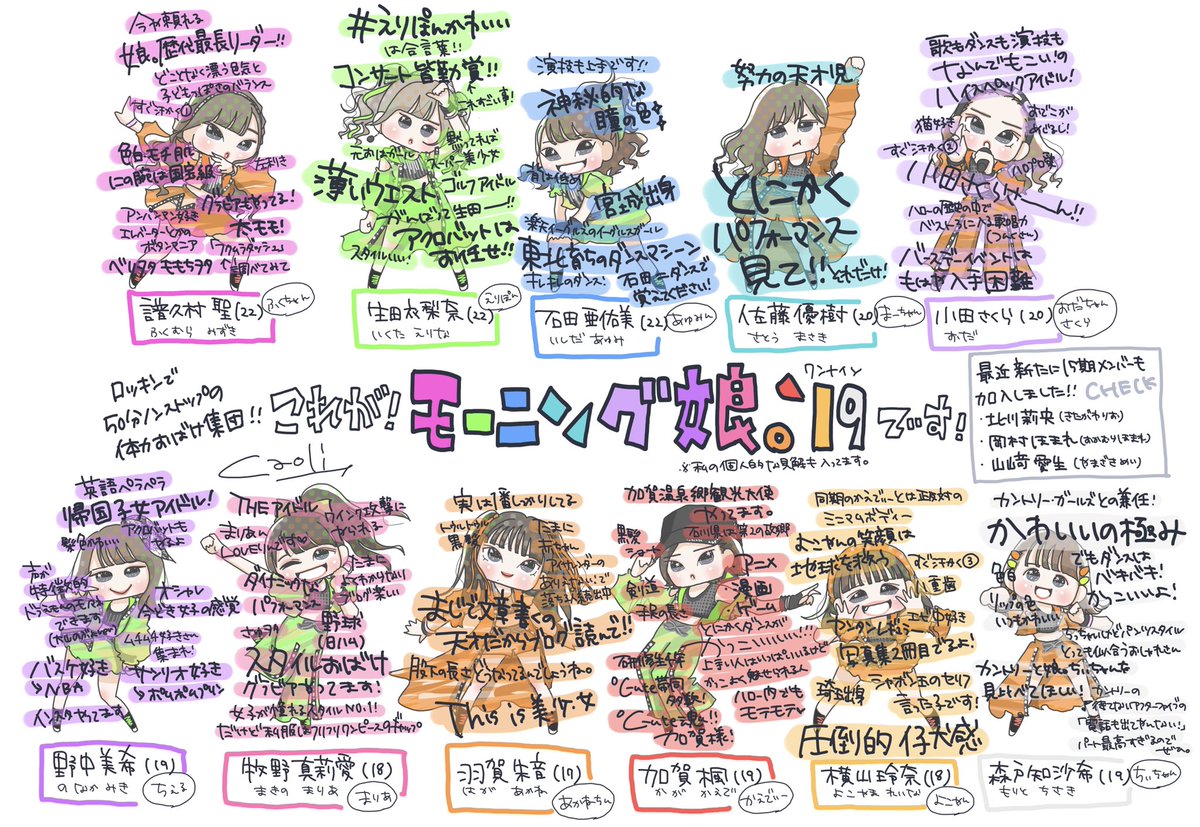 今が頼れる
娘。歴代最長リーダー!!
どことなく漂う色気と
子どもっぽさのバランス
すご汗かく①
色白モチ肌
左利き
にの腕は国宝級
グラビアもやってる!
アンパンマン好き
太モモ!
エレベーターとかの
ボタンマニア
「フクムラダッシュ」
ベリヲタ ももちヲタ
調べてみて
譜久村 聖(22)
ふくむら みずき
ふくちゃん
#えりぽんかわいい
は合言葉!!
コンサート皆勤賞!!
これすごい事!
元おはガール
黙ってれば
スーパー美少女
薄いウエスト
ゴルフアイドル
がんばって生田ー!!
スタイルいい!
アクロバットは
お任せ!!
生田衣梨奈(22)
いくた えりな
えりぽん
演技も上手です!!
神秘的な
瞳の色
背は低め
宮城出身
楽天イーグルスのイーグルスガール
東北育ちのダンスマシーン
キレキレのダンス!
石田=ダンスで
覚えてください!
石田 亜佑美(22)
いしだ あゆみ
あゆみん
努力の天才児
とにかく
パフォーマンス
見て!!
それだけ!
佐藤 優樹(20)
さとう まさき
まーちゃん
歌もダンスも演技も
なんでもこい!の
ハイスペックアイドル!
おでこが
めぐるじ!
猫好き
すご汗かく②
ハロプロ愛
小田さくらーん!!
ハローの歴史の中で
ベスト3に入る歌唱力
(つんくさん)
バースデーイベントは
もはや入手困難
小田さくら(20)
おだ
おだちゃん
さくら
ロッキンで
50分ノンストップの
体力おばけ集団!!
これが!
モーニング娘。'19
ワンナイン
です!
※私の個人的な見解も入ってます。
Caoli
最近新たに15期メンバーも
加入しました!! CHECK
・北川莉央(きたがわりお)
・岡村ほまれ(おかむらほまれ)
・山﨑愛生(やまざきめい)
英語ペラペラ
帰国子女アイドル!
アクロバットも
やるよ
髪色かわいい
声が
特徴的
オシャレ
今どき女子の感覚
できます
ムチムチ好きさん
集まれ!
バスケ好き
→NBA
サンリオ好き
→ポムポムプリン
インスタやってます
野中美希(19)
のなか みき
ちぇる
THEアイドル
ウインク攻撃に
やられる
まりあん
LOVEりんです。
たまに
よくわかんない
ノリが楽しい
ダイナミックな
パフォーマンス
野球
(日ハム)
スタイルおばけ
グラビアやってます!
女子が憧れるスタイルNO.1!
だけど私服はフリフリワンピースのギャップ
牧野真莉愛(18)
まきの まりあ
まりあ
実は1番しっかりしてる
トゥルトゥル
黒髪
たまに
赤ちゃん
まじで文章書くの
天才だからブログ読んで!!
股下の長さどうなってるんでしょうね。
This is 美少女
羽賀朱音(17)
はが あかね
あかねちん
加賀温泉郷観光大使
やってます。
石川県は第2の故郷
黒髪
剣道
アニメ
漫画
ゲーム
手足長い
とにかくダンスが
かっこいいいい!!!
上手い人はいっぱいいるけど
かっこよく魅せられる人
℃-ute帯同
多数!
℃-uteで言う!!
加賀様!
ハロー内でも
モテモテ
加賀 楓(19)
かが かえで
かえでぃー
同期のかえでぃーとは正反対の
ミニマムボディー
よこやんの笑顔は
地球を救う
すご汗かく③
八重歯
写真集2冊目でるよ!
埼玉出身
シャボン玉のセリフ
言ったる子です!
圧倒的 仔犬感
横山玲奈(18)
よこやま れいな
よこやん
カントリー・ガールズとの兼任!
かわいいの極み
でもダンスは
バキバキ!
かっこいいよ!
リップの色
いつもかわいい
ちっちゃいけどパンツスタイル
とっても似合うおしゃれさん
カントリーと娘。のちぃちゃんを
見比べてほしい!
カントリーの
「電話も出てやんない!」
パート最高すぎるので
ぜひ。
森戸知沙希(19)
もりと ちさき
ちぃちゃん